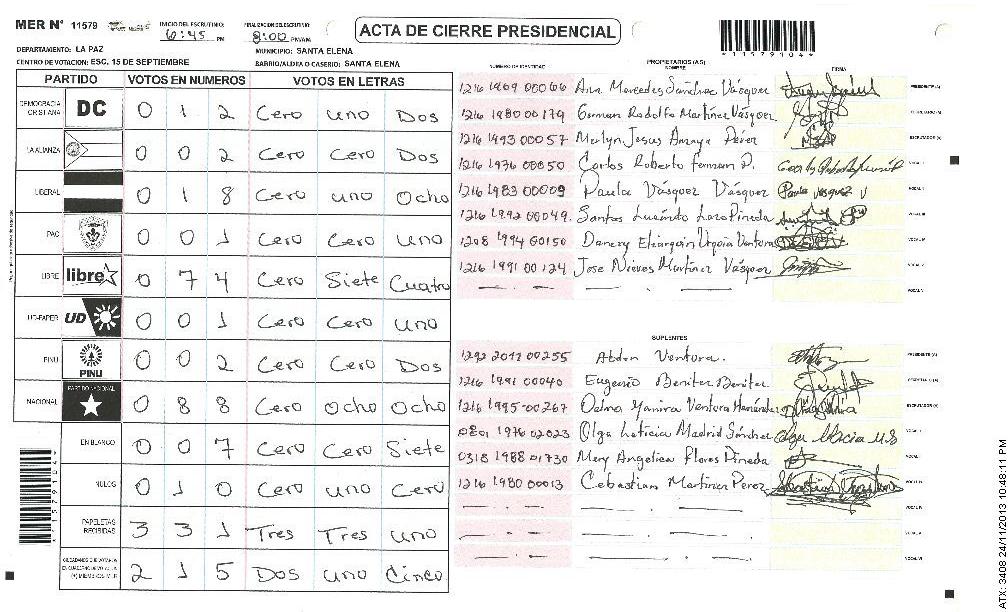 MER N° 11579
INICIO DEL ESCRUTINIO: 6:45 PM
FINALIZACION DEL ESCRUTINIO: 8:00 PM/AM
ACTA DE CIERRE PRESIDENCIAL
*11579104*
DEPARTAMENTO: LA PAZ
MUNICIPIO: SANTA ELENA
CENTRO DE VOTACION: ESC. 15 DE SEPTIEMBRE
BARRIO/ALDEA O CASERIO: SANTA ELENA
PARTIDO VOTOS EN NUMEROS VOTOS EN LETRAS
DEMOCRACIA CRISTIANA DC 0 1 2 Cero uno Dos
LA ALIANZA 0 0 2 Cero Cero Dos
LIBERAL 0 1 8 Cero uno Ocho
PAC 0 0 1 Cero Cero uno
LIBRE libre 0 7 4 Cero Siete Cuatro
UD-FAPER UD 0 0 1 Cero Cero uno
PINU PINU 0 0 2 Cero Cero Dos
NACIONAL PARTIDO NACIONAL 0 8 8 Cero Ocho Ocho
EN BLANCO 0 0 7 Cero Cero Siete
NULOS 0 1 0 Cero uno Cero
PAPELETAS RECIBIDAS 3 3 1 Tres Tres uno
(+) MIEMBROS MER 2 1 5 Dos uno Cinco
PROPIETARIOS (AS)
NUMERO DE IDENTIDAD NOMBRE FIRMA
1216 1989 00066 Ana Mercedes Sanchez Vásquez PRESIDENTE (A)
1216 1980 00179 German Rodolfo Martinez Vásquez SECRETARIO (A)
1216 1993 00057 Merlyn Jesus Amaya Pérez ESCRUTADOR (A)
1216 1976 00050 Carlos Roberto VOCAL I
1216 1983 00009 Paula Vásquez Vásquez Paula vasquez V VOCAL II
1216 1992 00049 Santos Lazo Pineda VOCAL III
1208 1994 00150 Ventura VOCAL IV
1216 1991 00124 Jose Nieves Martinez Vásquez VOCAL V
VOCAL VI
SUPLENTES
1292 2011 00255 Abdon Ventura. PRESIDENTE (A)
1216 1991 00040 Eugenio Benitez Benitez SECRETARIO (A)
1216 1995-00267 Delma Yamira Ventura Hernández ESCRUTADOR (A)
0801 1976 02023 Olga Leticia Madrid Sánchez VOCAL I
0318 1988 01730 Mery Angelica Flores Pineda VOCAL II
1216 1980 00013 Cebastian Martinez Perez VOCAL III
VOCAL IV
VOCAL V
VOCAL VI
*11579104*
ATX: 3408 24/11/2013 10:48:11 PM